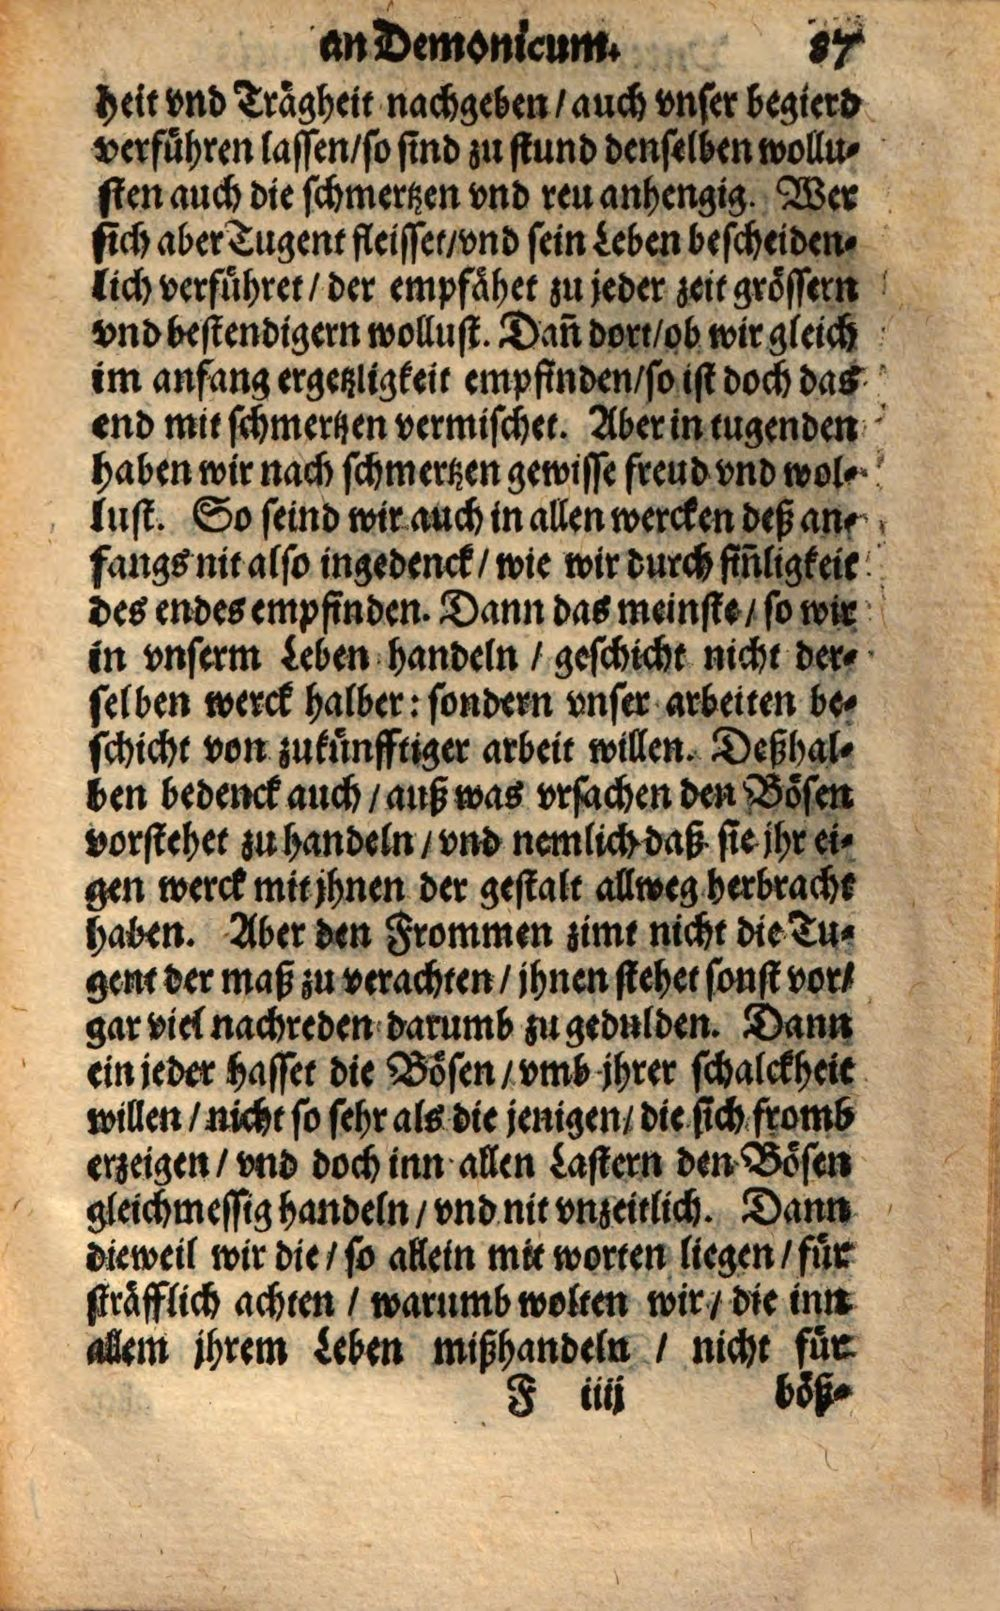 an Demonicum. 87
heit vnd Trägheit nachgeben / auch vnser begierd
verführen lassen/so sind zu stund denselben wollu-
sten auch die schmertzen vnd reu anhengig. Wer
sich aber Tugent fleisset/vnd sein Leben bescheiden-
lich verführet / der empfähet zu jeder zeit grössern
vnd bestendigern wollust. Dañ dort/ob wir gleich
im anfang ergetzligkeit empfinden/so ist doch das
end mit schmertzen vermischet. Aber in tugenden
haben wir nach schmertzen gewisse freud vnd wol-
lust. So seind wir auch in allen wercken deß an-
fangs nit also ingedenck / wie wir durch siñligkeit
des endes empfinden. Dann das meinste / so wir
in vnserm Leben handeln / geschicht nicht der-
selben werck halber: sondern vnser arbeiten be-
schicht von zukünfftiger arbeit willen. Deßhal-
ben bedenck auch / auß was vrsachen den Bösen
vorstehet zu handeln / vnd nemlich daß sie jhr ei-
gen werck mit jhnen der gestalt allweg herbracht
haben. Aber den Frommen zimt nicht die Tu-
gent der maß zu verachten / jhnen stehet sonst vor/
gar viel nachreden darumb zu gedulden. Dann
ein jeder hasset die Bösen / vmb jhrer schalckheit
willen / nicht so sehr als die jenigen / die sich fromb
erzeigen / vnd doch inn allen Lastern den Bösen
gleichmessig handeln / vnd nit vnzeitlich. Dann
dieweil wir die / so allein mit worten liegen / für
sträfflich achten / warumb wolten wir / die inn
allem jhrem Leben mißhandeln / nicht für
F iiij böß-